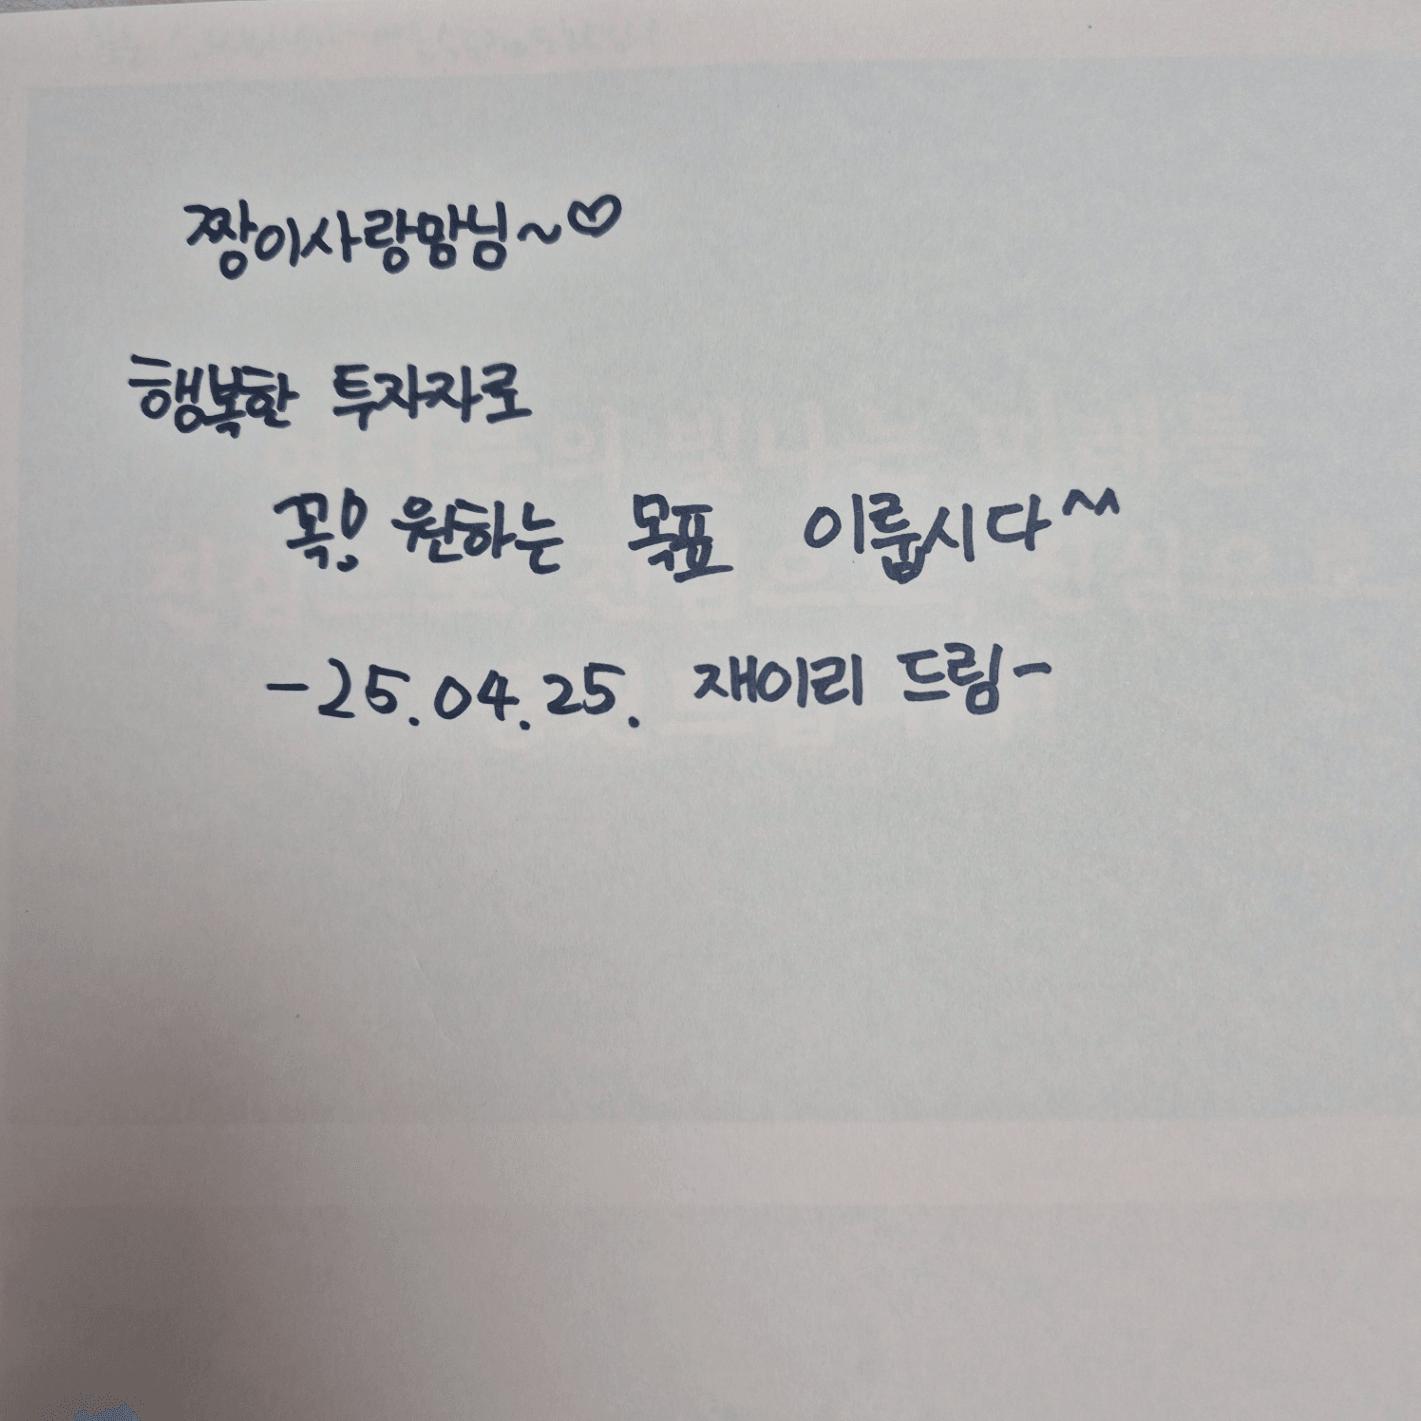 짱이사랑맘님~♡
행복한 투자자로
꼭! 원하는 목표 이룹시다^^
-25.04.25. 재이리 드림-